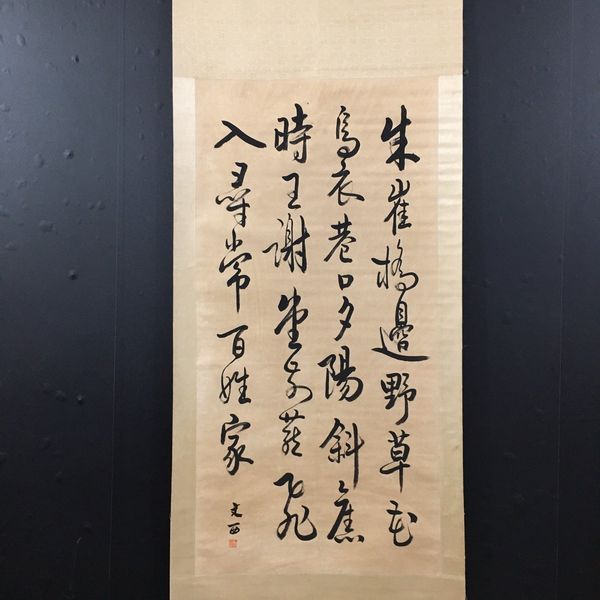 朱雀橋邊野草花
烏衣巷口夕陽斜舊
時王謝堂前燕飛
入尋常百姓家
文西